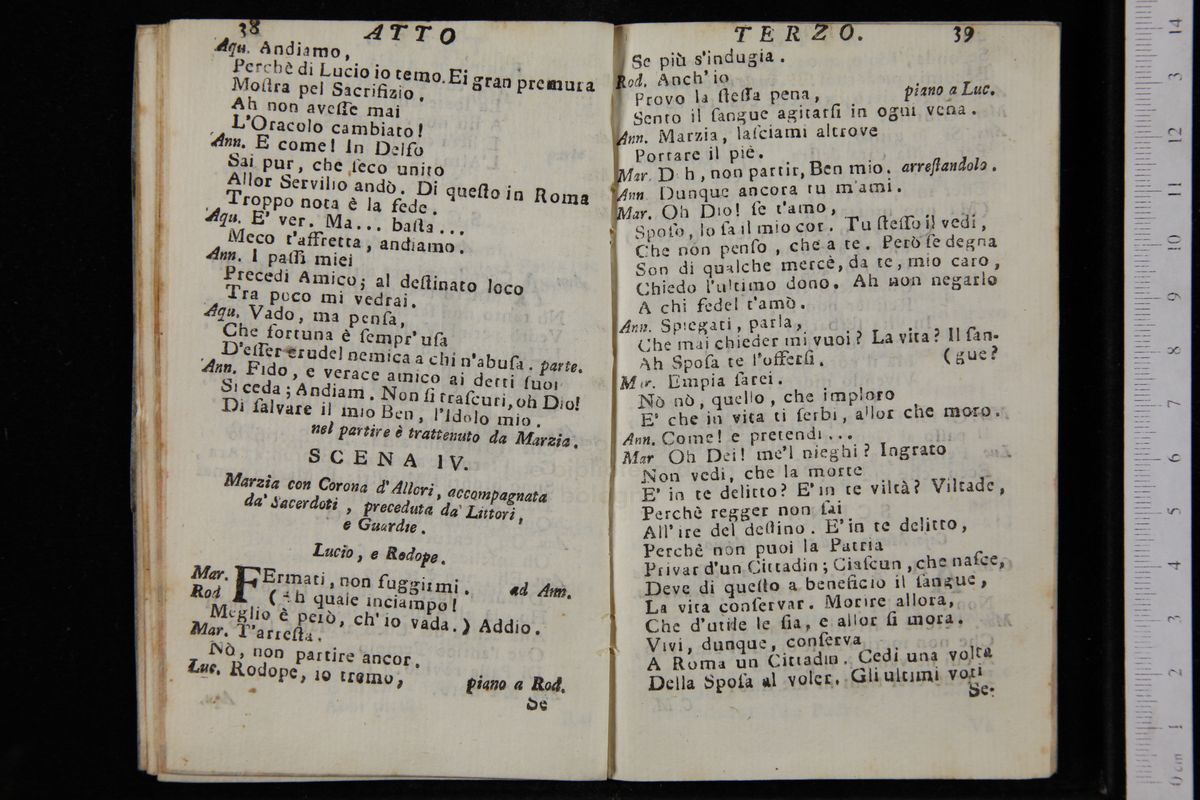 38 ATTO
Aqu. Andiamo,
Perchè di Lucio io temo. Ei gran premura
Moſtra pel Sacrifizio.
Ah non aveſſe mai
L'Oracolo cambiato!
Ann. E come! In Delfo
Sai pur, che ſeco unito
Allor Servilio andò. Di queſto in Roma
Troppo nota è la fede.
Aqu. E' ver. Ma... baſta...
Meco t'affretta, andiamo.
Ann. I paſſi miei
Precedi Amico; al deſtinato loco
Tra poco mi vedrai.
Aqu. Vado, ma penſa,
Che fortuna è ſempr' uſa
D'eſſer crudel nemica a chi n'abuſa. parte.
Ann. Fido, e verace amico ai detti ſuoi
Si ceda; Andiam. Non ſi traſcuri, oh Dio!
Di ſalvare il mio Ben, l'Idolo mio.
nel partire è trattenuto da Marzia.
SCENA IV.
Marzia con Corona d'Allori, accompagnata
da' Sacerdoti, preceduta da' Littori,
e Guardie.
Lucio, e Rodope.
Mar. FErmati, non fuggirmi. ad Ann.
Rod (Ah quale inciampo!
Meglio è però, ch'io vada.) Addio.
Mar. T'arreſta.
Nò, non partire ancor.
Luc. Rodope, io tremo, piano a Rod.
Se
TERZO. 39
Se più s'indugia.
Rod. Anch' io
Provo la ſteſſa pena, piano a Luc.
Sento il ſangue agitarſi in ogni vena.
Ann. Marzia, laſciami altrove
Portare il piè.
Mar. D h, non partir, Ben mio. arreſtandolo.
Ann Dunque ancora tu m'ami.
Mar. Oh Dio! ſe t'amo,
Spoſo, lo ſa il mio cor. Tu ſteſſo il vedi,
Che non penſo, che a te. Però ſe degna
Son di qualche mercè, da te, mio caro,
Chiedo l'ultimo dono. Ah non negarlo
A chi fedel t'amò.
Ann. Spiegati, parla,
Che mai chieder mi vuoi? La vita? Il ſan-
Ah Spoſa te l'offerſi. (gue?
Mar. Empia ſarei.
Nò nò, quello, che imploro
E' che in vita ti ſerbi, allor che moro.
Ann. Come! e pretendi...
Mar Oh Dei! me'l nieghi? Ingrato
Non vedi, che la morte
E' in te delitto? E' in te viltà? Viltade,
Perchè regger non ſai
All' ire del deſtino. E' in te delitto,
Perchè non puoi la Patria
Privar d'un Cittadin; Ciaſcun, che naſce,
Deve di queſto a beneficio il ſangue,
La vita conſervar. Morire allora,
Che d'utile le ſia, e allor ſi mora.
Vivi, dunque, conſerva
A Roma un Cittadin. Cedi una volta
Della Spoſa al voler. Gli ultimi voti
Se-